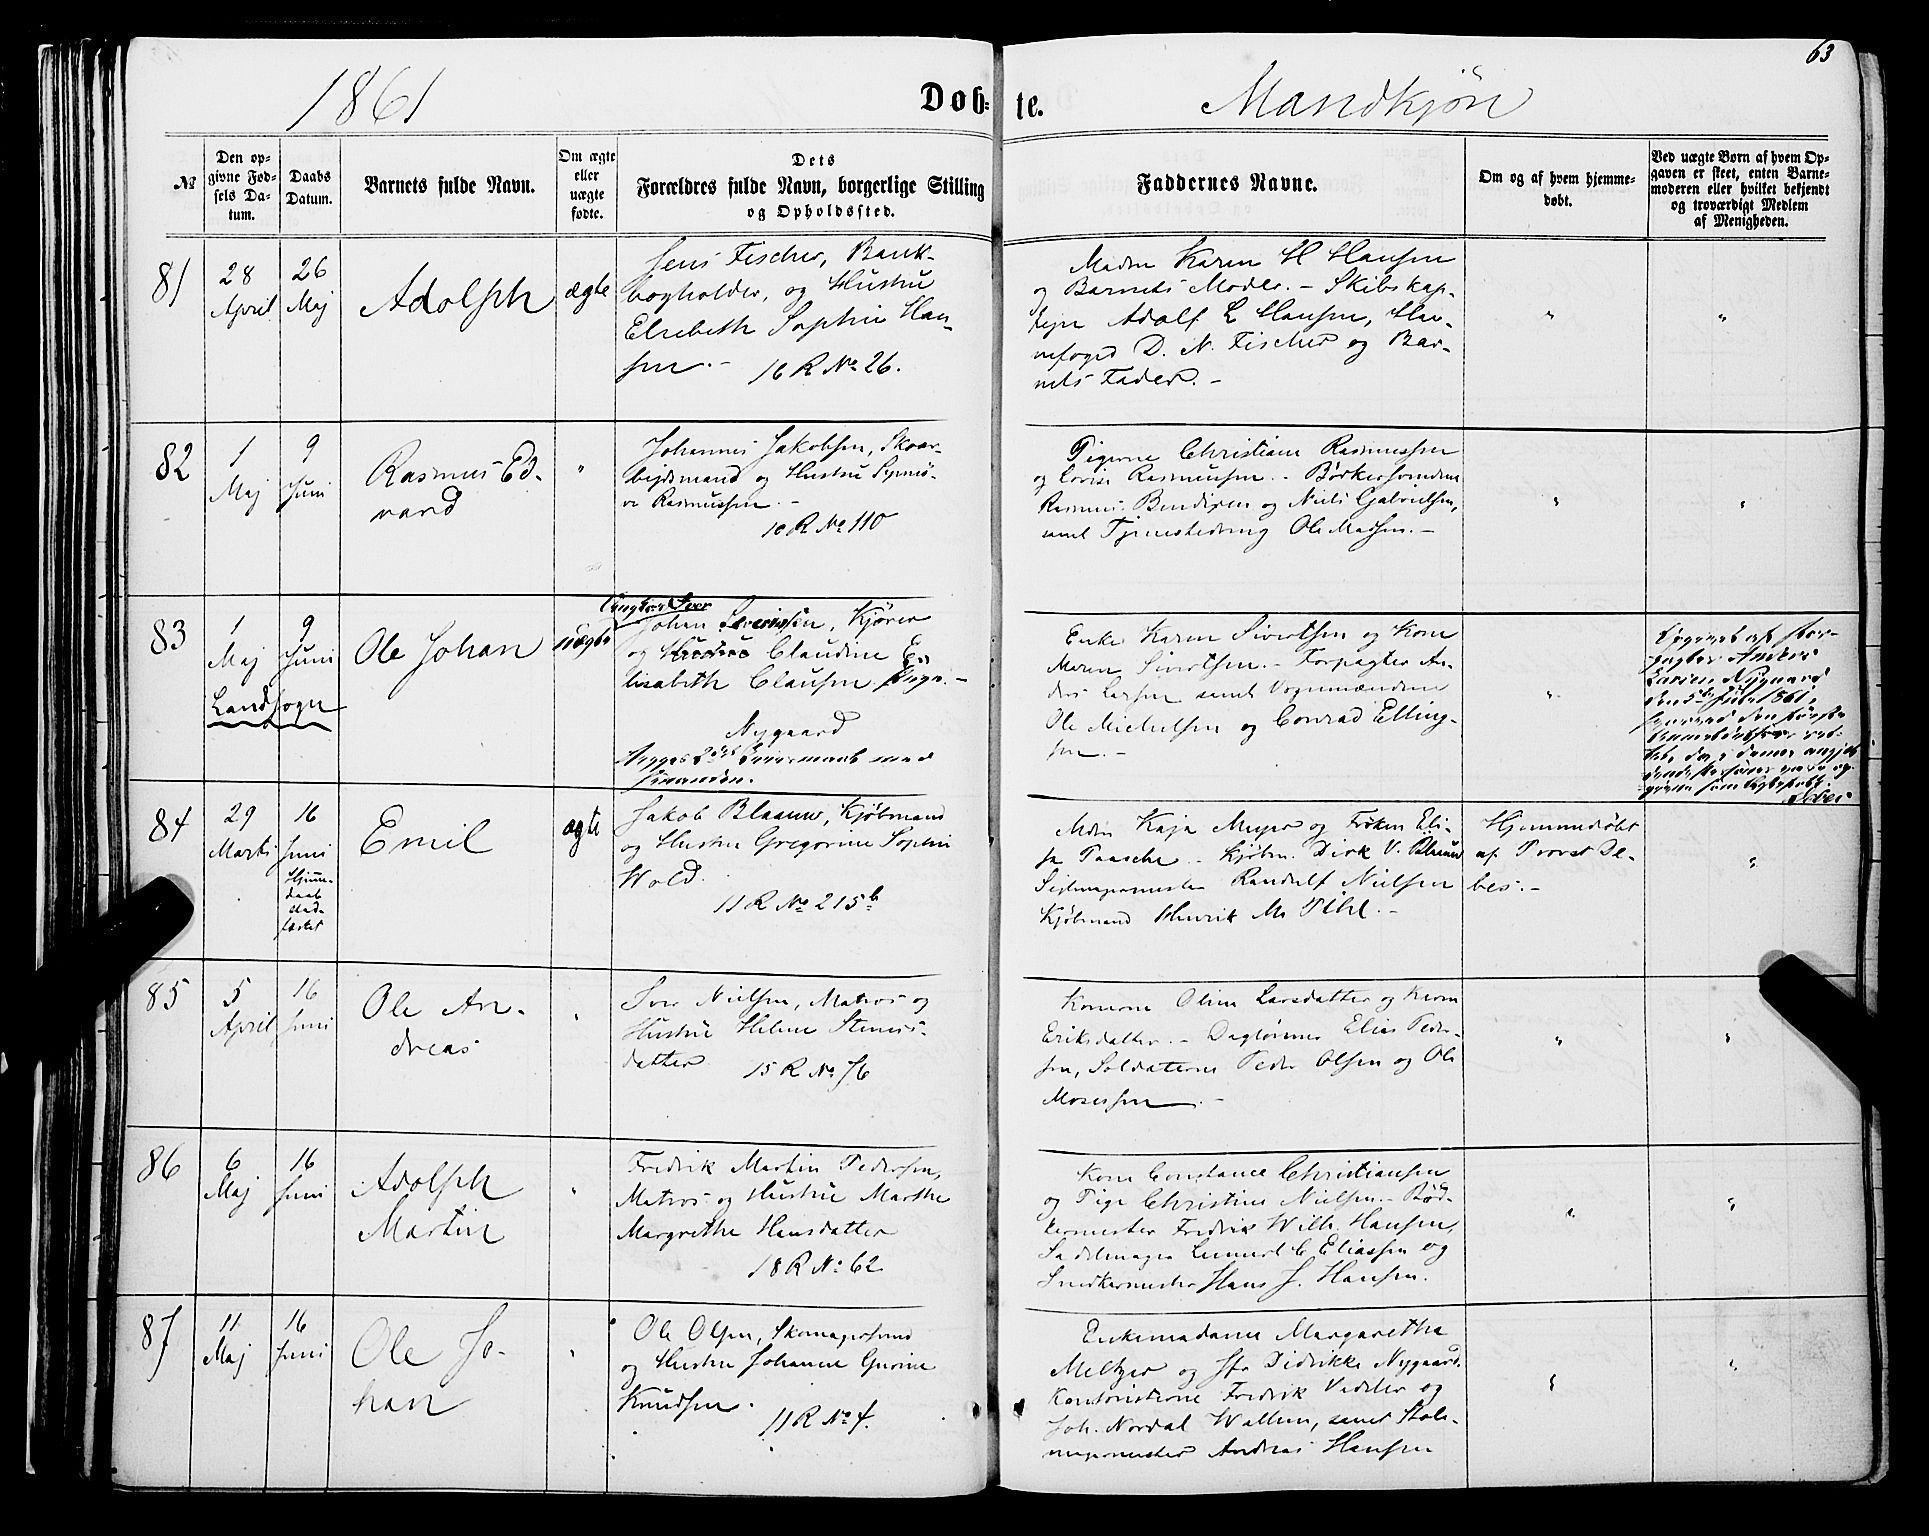 63
1861
Døb-
te.
Mandkjøn
№
Den op-
givne Fød-
sels Da-
tum.
Daabs
Datum.
Barnets fulde Navn.
Om ægte
eller
uægte
fødte.
Dets
Forældres fulde Navn, borgerlige Stilling
og Opholdssted.
Faddernes Navne.
Om og af hvem hjemme-
døbt.
Ved uægte Børn af hvem Op-
gaven er skeet, enten Barne-
moderen eller hvilket bekjendt
og troværdigt Medlem
af Menigheden.
81
28
April
26
Maj
Adolph
ægte
Jens Fischer, Bank-
bogholder, og Hustru
Elsebeth Sophie Han-
sen. -
16 R No 26.
Madm Karen H Hansen
og Barnets Moder. - Skibskap-
tejn Adolf L Hansen, Hav-
nefoged D. N. Fischer og Bar-
nets Fader. -
"
"
82
1
Maj
9
Juni
Rasmus Ed-
vard
"
Johannes Jakobsen,
bejdsmand og Hustru Synnö-
ve Rasmussen. -
10 R No 110
Pigerne Christiane Rasmussen
og Lovise Rasmussen. - Bødkersvendene
Rasmus Bendixen og Niels Gabrielsen,
samt Tjenestedreng Ole Madsen. -
"
"
83
1
Maj
9
Juni
Landsogn
Ole Johan
uægte
Ungkar Iver
Johan Severinsen, Kjører
og Hustrue Claudine E-
lisabeth Clausen Pige. -
Nygaard
Begges 2det Leiermaal med
hinanden.
Enke Karen Sivertsen og Kone
Maren Sivertsen. - Forpagter An-
ders Larsen samt Vognmændene
Ole Michelsen og Conrad Elling-
sen. -
"
Opgivet af For-
pagter Anders
Larsen Nygaard
den 5te Juli 1861,
84
29
Marts
16
Juni
Hjemme-
daab
stad-
fæstet
Emil
ægte
Jakob Blaauw, Kjøbmand
og Hustru Gregorine Sophie
Wold.
11 R No 215b
Mdm Kaja Meyer og Frøken Eli-
se Paasche - Kjøbm. Dirk V. Blaauw
Seilmagermester Randulf Nielsen
Kjøbmand Henrik M Pihl. -
Hjemmedøbt
af Provst De-
bes. -
"
85
5
April
16
Juni
Ole An-
dreas
"
Iver Nielsen, Matros og
Hustru Helene Steners-
datter
15 R No 76
Konerne Oline Larsdatter og Karen
Eriksdatter. - Dagløner Elias Peder-
sen, Soldaterne Peder Olsen og Ole
Mosessen. -
"
"
86
6
Maj
16
Juni
Adolph
Martin
"
Fredrik Martin Pedersen,
Matros og Hustru Marthe
Margrethe Hansdatter
18 R No 62
Kone Constance Christiansen
og Pige Christine Nielsen. - Bød-
kermester Fredrik Wilh. Hansen,
Sadelmager Lennert C Eliassen og
Snedkermester Hans J. Hansen.
"
"
87
11
Maj
16
Juni
Ole Jo-
han
"
Ole Olsen, Skomagersvend
og Hustru Johanne Gurine
Knudsen.
11 R No 4.
Enkemadame Margaretha
Meltzer og Jfr Didrikke Nygaard.
Kontoristerne Fredrik Vedeler og
Joh. Nordal Wallem, samt Stole-
magermester Andreas Hansen
"
"